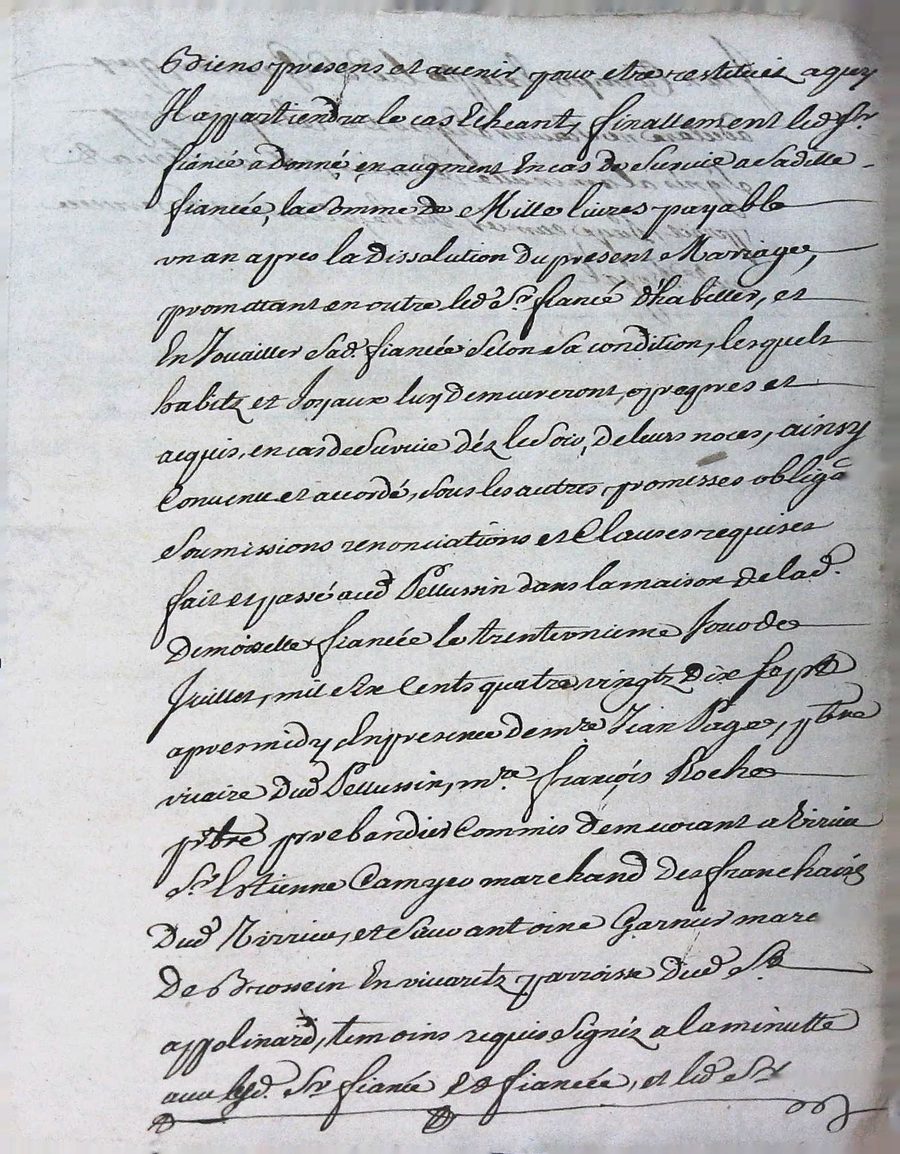 Biens presens et avenir pour etre restituez a quy
Il appartiendra le cas Echeant, finallement led Sr
fiancé a donné en augment En cas de Survie a Sadite
fiancée, la Somme de Mille livres payable
un an apres la dissolution du present Mariage,
promettant en outre led Sr. fiancé d'habiller, et
En Jouailler Sad. fiancée Selon Sa condition, lesquels
habitz et Joyaux luy demeureront, propres et
acquis, en cas de Survie déz le Soir, de leurs noces, ainsy
Convenu et accordé, sous les autres promesses obliga
Soumissions renonciations et Clauses requises
fait et passé aud Pellussin dans la maison de lad.
Demoiselle fiancée le trente unieme Jour de
Juillet, mil Six Cents quatre vingtz dix sept
apres midy En presence de mre Jean Page, ptre
vicaire dud Pellussin, mre françois Roche
ptre prebandier Commis demeurant a Virieu
Sr. Estienne Camyer marchand des franchaises
Dud Virieu, et Sieur antoine Garnier marc
De Brossein En vivaretz parroisse dud St
appolinard, temoins requis Signéz a la minutte
avec lesd. Srs fiancé Et fiancée, et led Sr